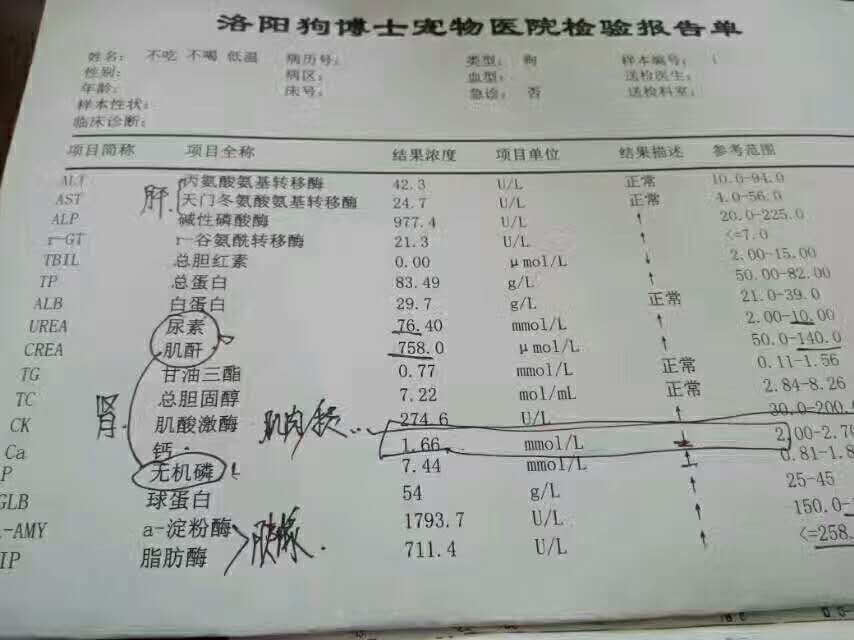 洛阳狗博士宠物医院检验报告单
姓名: 不吃 不喝 低温 病历号: 类型: 狗 样本编号: 1
性别: 病区: 血型: 送检医生:
年龄: 床号: 急诊: 否 送检科室:
样本性状:
临床诊断:
项目简称 项目全称 结果浓度 项目单位 结果描述 参考范围
ALT 丙氨酸氨基转移酶 42.3 U/L 正常 10.0-94.0
肝
AST 天门冬氨酸氨基转移酶 24.7 U/L 正常 4.0-56.0
ALP 碱性磷酸酶 977.4 U/L ↑ 20.0-225.0
r-GT r-谷氨酰转移酶 21.3 U/L ↑ <=7.0
TBIL 总胆红素 0.00 μmol/L ↓ 2.00-15.00
TP 总蛋白 83.49 g/L ↑ 50.00-82.00
ALB 白蛋白 29.7 g/L 正常 21.0-39.0
UREA 尿素 76.40 mmol/L ↑ 2.00-10.00
CREA 肌酐 758.0 μmol/L ↑ 50.0-140.0
TG 甘油三酯 0.77 mmol/L 正常 0.11-1.56
TC 总胆固醇 7.22 mol/mL 正常 2.84-8.26
肾
CK 肌酸激酶 肌肉 274.6 U/L ↑ 30.0-200.
Ca 钙 1.66 mmol/L ↓ 2.00-2.7
P 无机磷 7.44 mmol/L ↑ 0.81-1.8
GLB 球蛋白 54 g/L ↑ 25-45
-AMY a-淀粉酶 1793.7 U/L ↑ 150.0-
胰腺
IP 脂肪酶 711.4 U/L ↑ <=258.